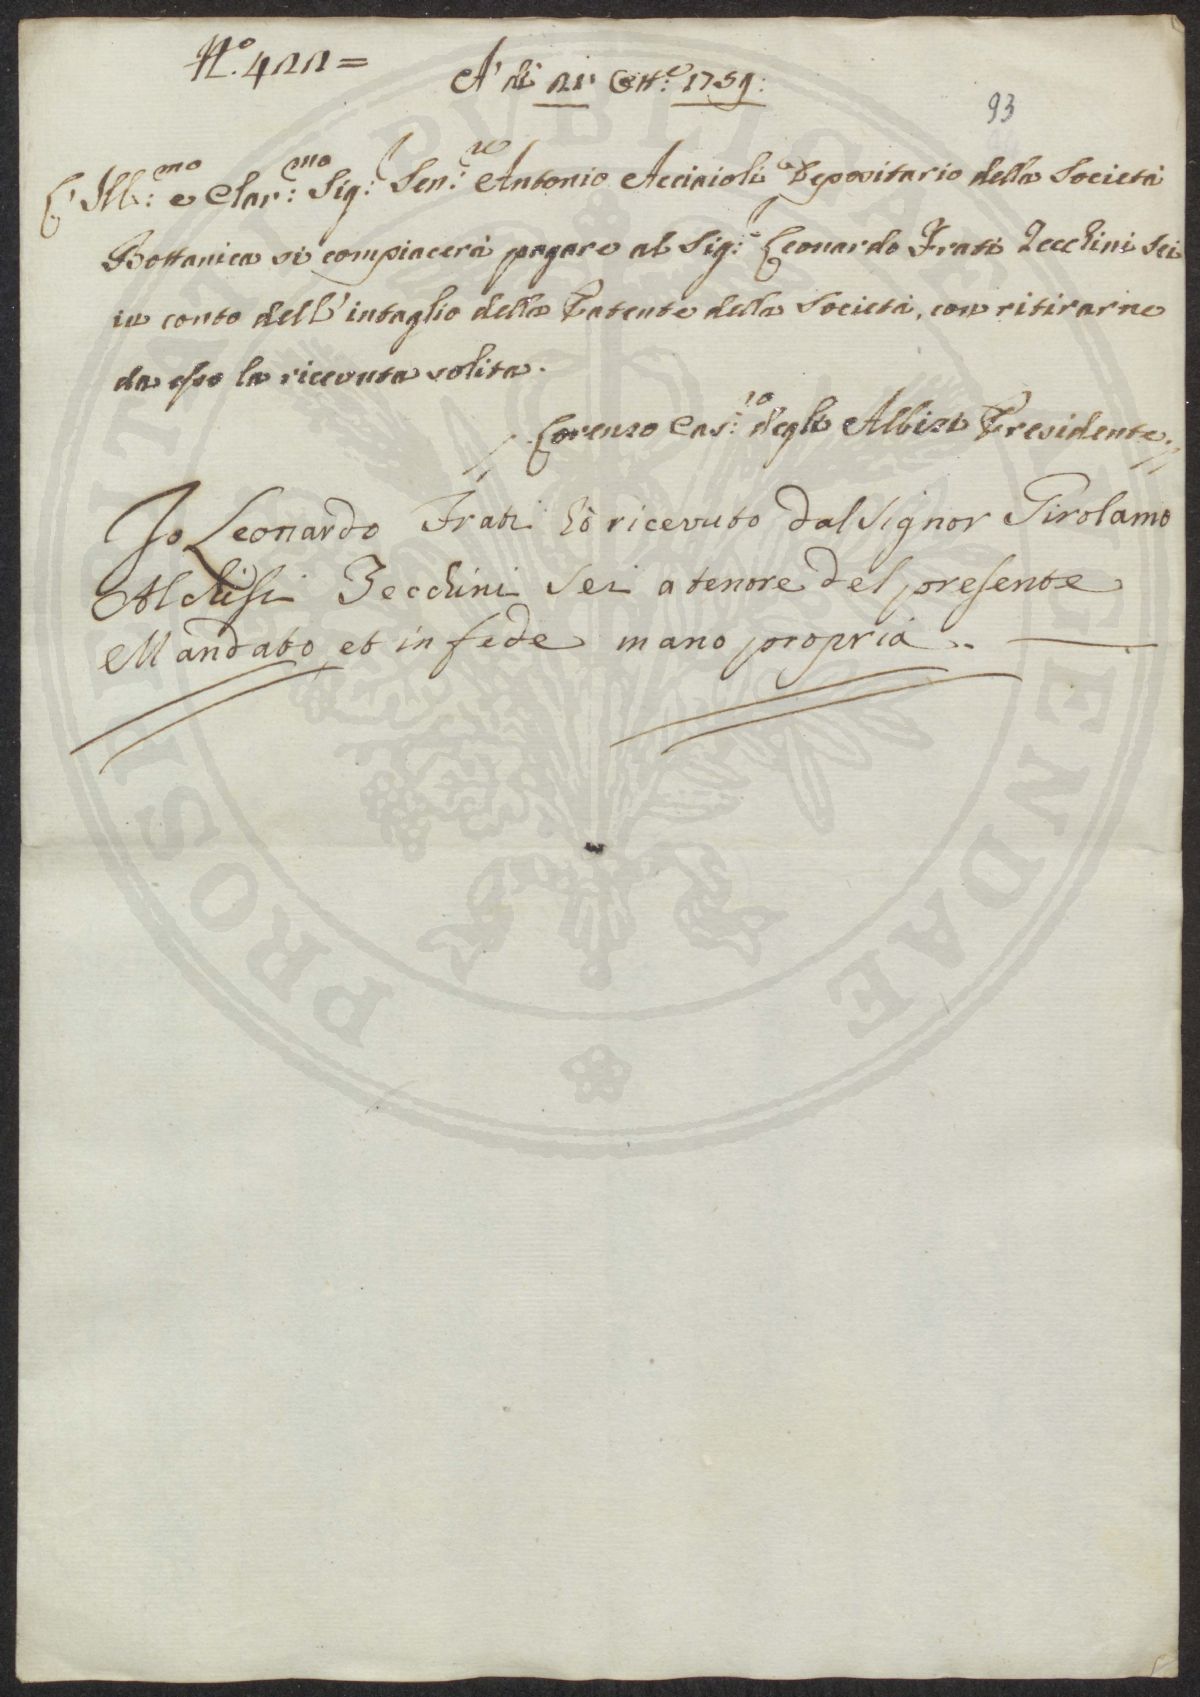 N.º 422 =
A' dì 21 Ott.e 1759:
93
L' Ill:mo e Clar:mo Sig:r Sen:re Antonio Acciaioli Depositario della Società
Bottanica si compiacerà pagare al Sig:r Leonardo Frati Zecchini Sei
in conto dell' intaglio della Patente della Società, con ritirarne
da esso la ricevuta solita.
Lorenzo Cas:ro degli Albizi Presidente
Io Leonardo Frati hò ricevuto dal Signor Girolamo
Alchisi Zecchini Sei a tenore del presente
Mandato et in fede mano propria.
PROSPERITATI PUBLICAE AUGENDAE